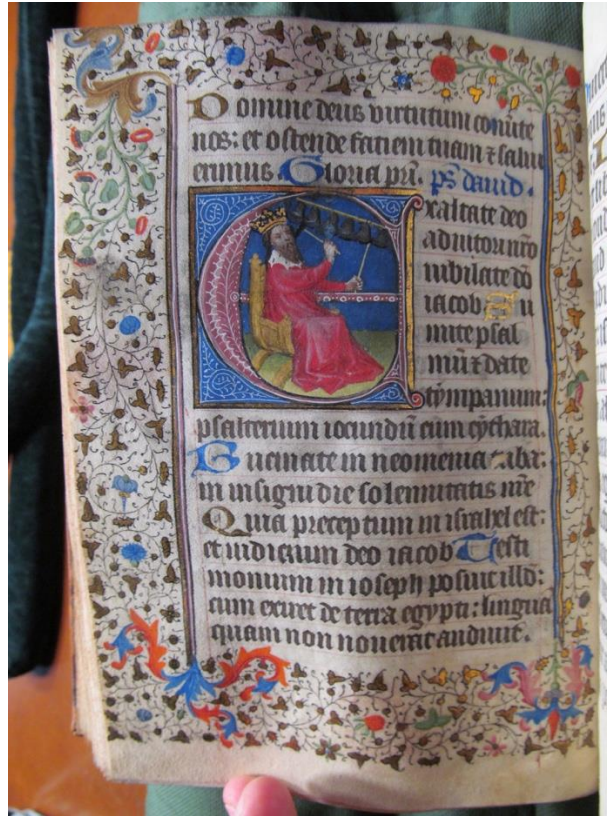 Domine deus virtutum conũte
nos: et ostende faciem tuam ⁊ salui
erimus. Gloria pri. ps dauid.
Exaltate deo
adiutori nr̃o
iubilate dõ
iacob Su
mite psal
mũ ⁊ date
tympanum:
psalterium iocundũ cum cythara.
Bucinate in neomenia tuba:
in insigni die solennitatis nr̃e
Quia preceptum in israhel est:
et iudicium deo iacob Testi
monium in ioseph posuit illd:
cum exiret de terra egypti: lingua
quam non nouerat audiuit.